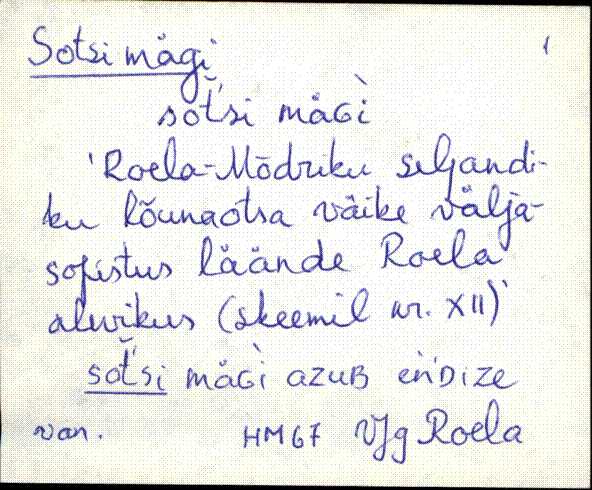 Sotsi mägi 1
sot̆'si mäGì
'Roela-Mõdriku seljandi-
ku lõunaotsa väike välja-
sopistus läände Roela
alevikus (skeemil nr. XII)'
sot̆'si mäGì azuB en̆'Dize
van. HM 67 VJg Roela